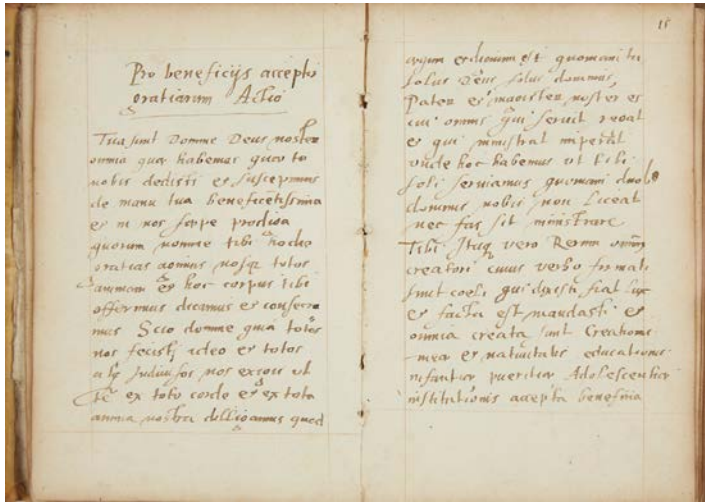 Pro beneficijs acceptis
gratiarum Actio
Tua sunt Domine Deus noster
omnia quae habemus quae tu
nobis dedisti et suscepimus
de manu tua beneficetissima
et in nos saepe prodiga
quorum nomine tibi hodie
gratias agimus nosque totos
animam et hoc corpus tibi
offerimus dicamus et consecra
mus Scio domine quia totos
nos fecisti ideo et totos
nos exigis ut
te ex toto corde et ex tota
anima nostra diligamus quod
15
aequum et dignum est quoniam tu
solus Deus solus dominus,
Pater et magister noster es
cui omnis qui servit regat
et qui ministrat imperat
unde hoc habemus ut tibi
soli serviamus quoniam duobus
dominis nobis non liceat
nec fas sit ministrare
Tibi Itaque vero Rerum omnium
creatori cuius verbo firmati
sunt coeli qui dixisti fiat lux
et facta est mandasti et
omnia creata sunt Creationis
meae et nativitatis educationis
infantiae pueritiae Adolescentiae
institutionis accepta beneficia